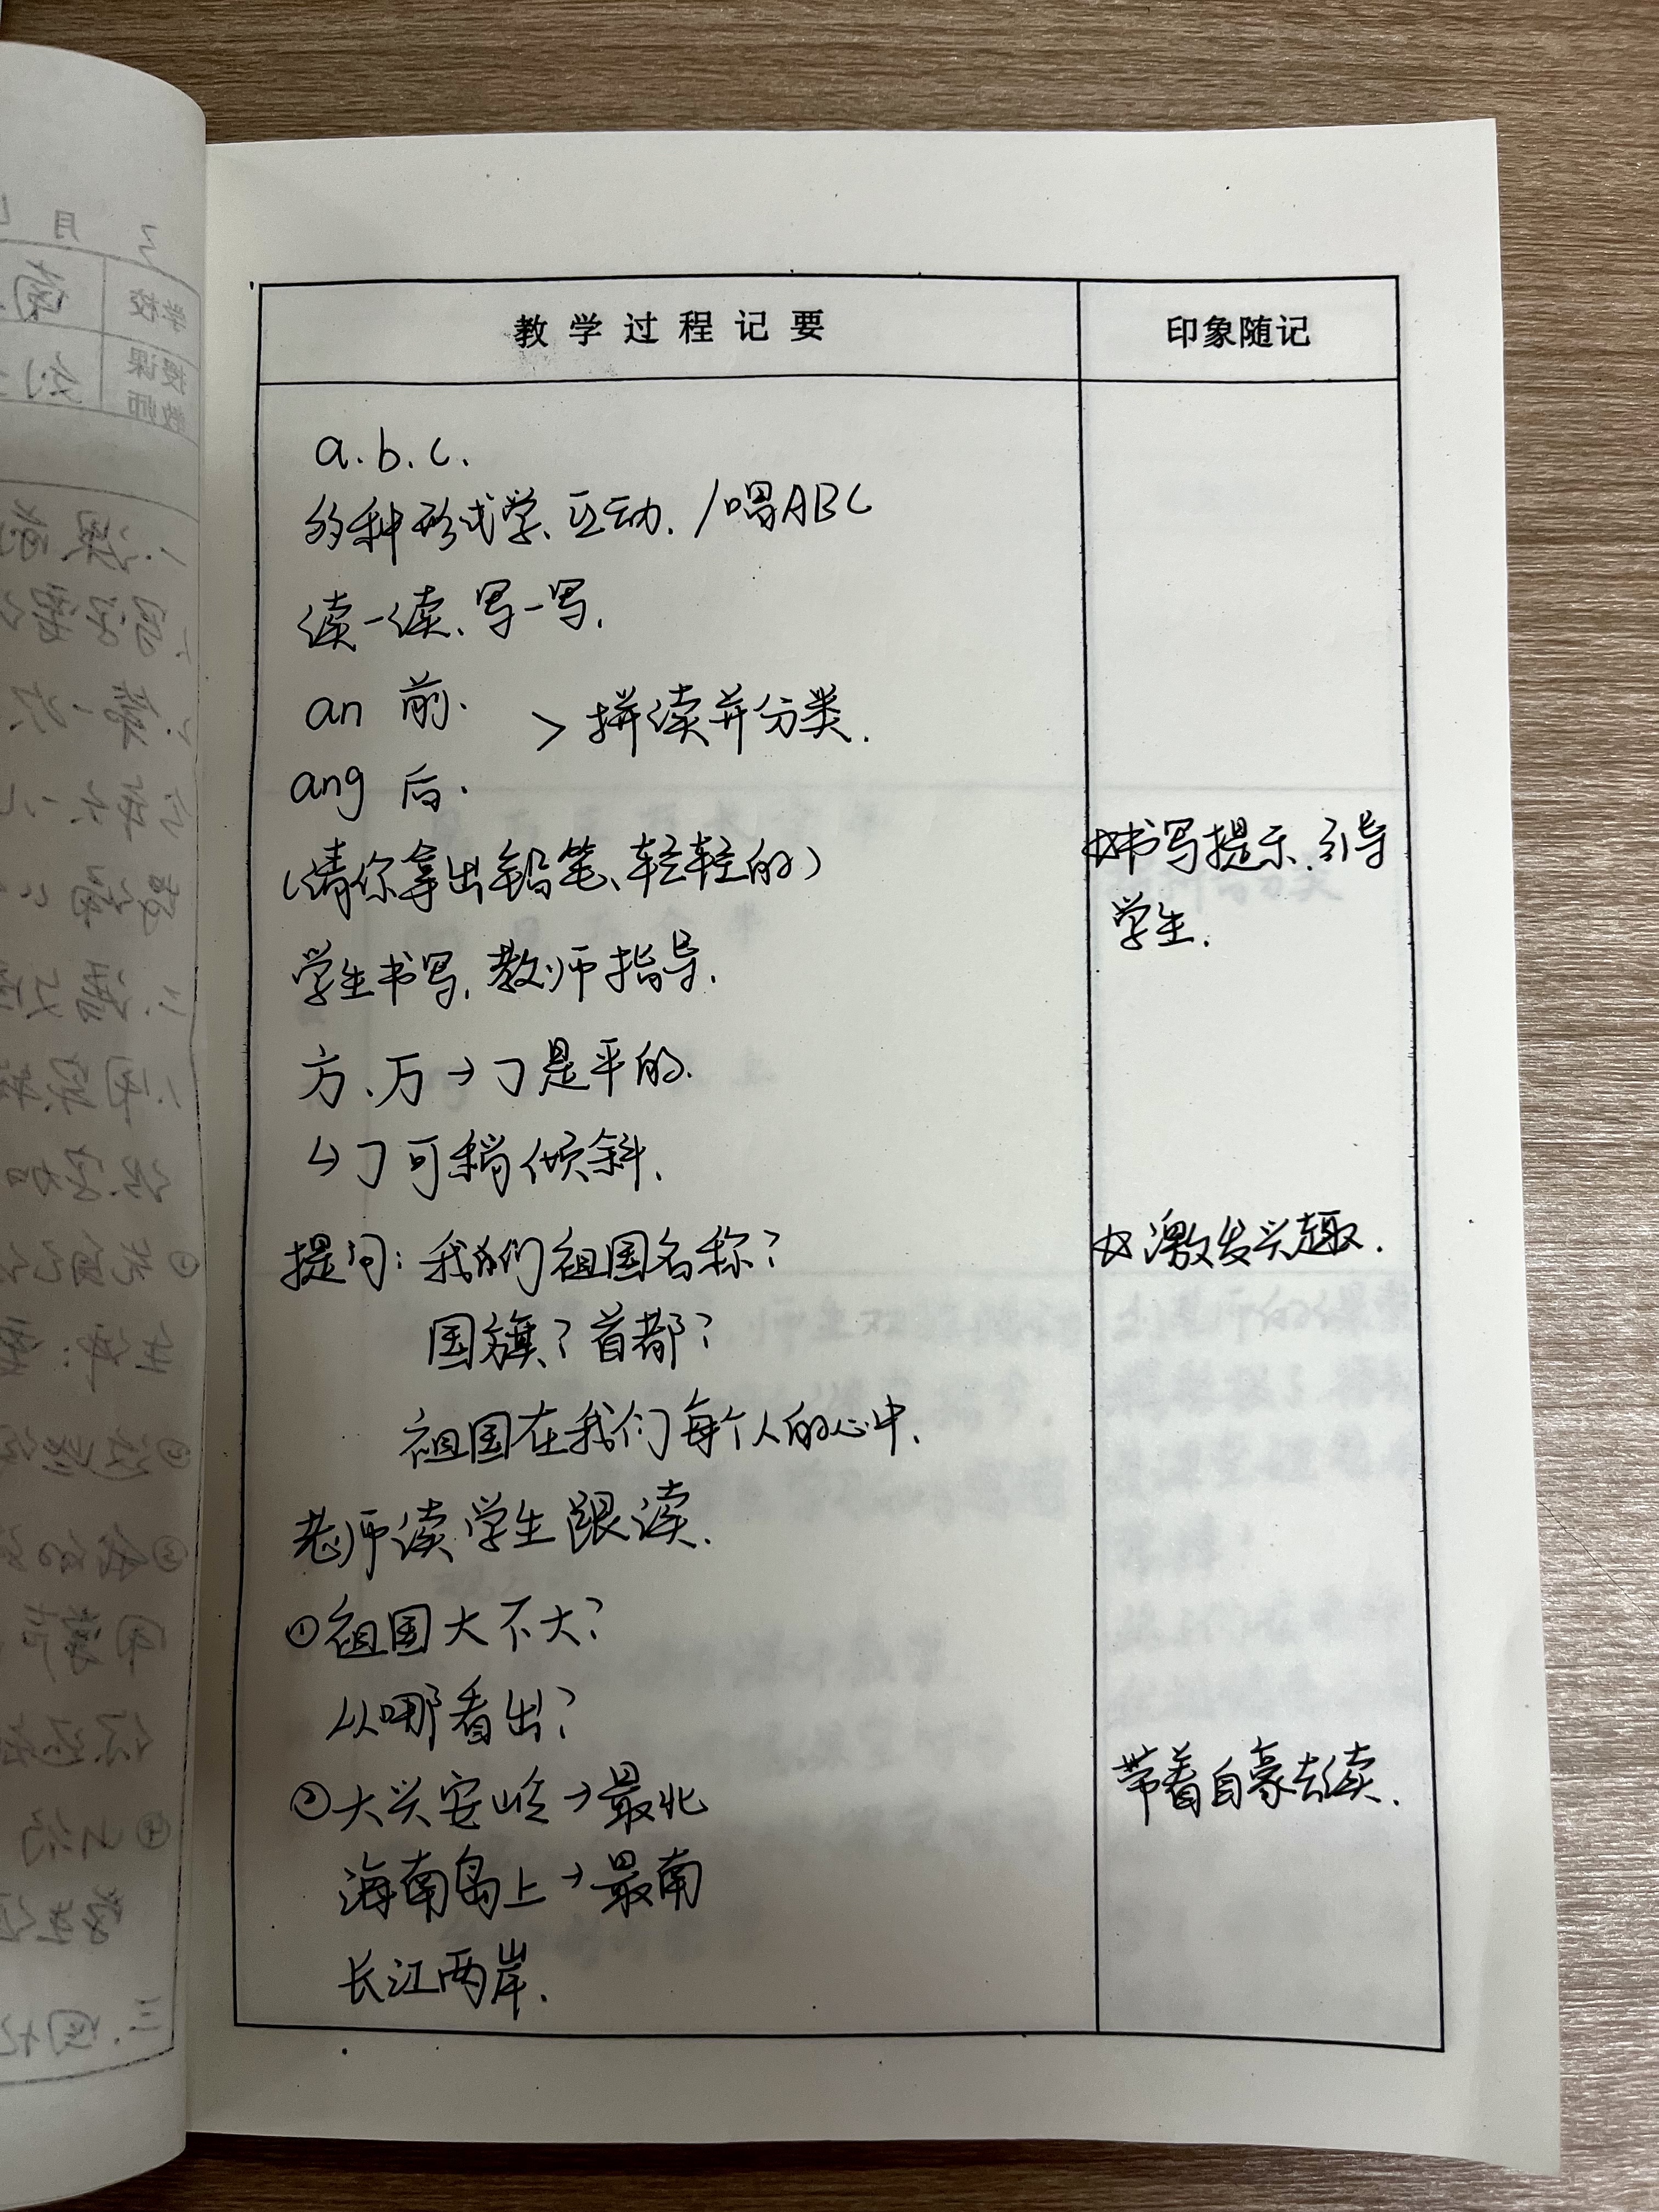 教学过程记要
印象随记
a.b.c.
多种形式学、互动. /唱ABC
读一读、写一写.
an 前.
> 拼读并分类.
ang 后.
(请你拿出铅笔、轻轻的)
☆书写提示、引导
学生.
学生书写, 教师指导.
方、万→㇆是平的.
↳㇆可稍倾斜.
提问: 我们祖国名称?
☆激发兴趣.
国旗? 首都?
祖国在我们每个人的心中.
老师读 学生跟读.
①祖国大不大?
从哪看出?
②大兴安岭→最北
带着自豪去读.
海南岛上→最南
长江两岸.
月
学校
授课
教师